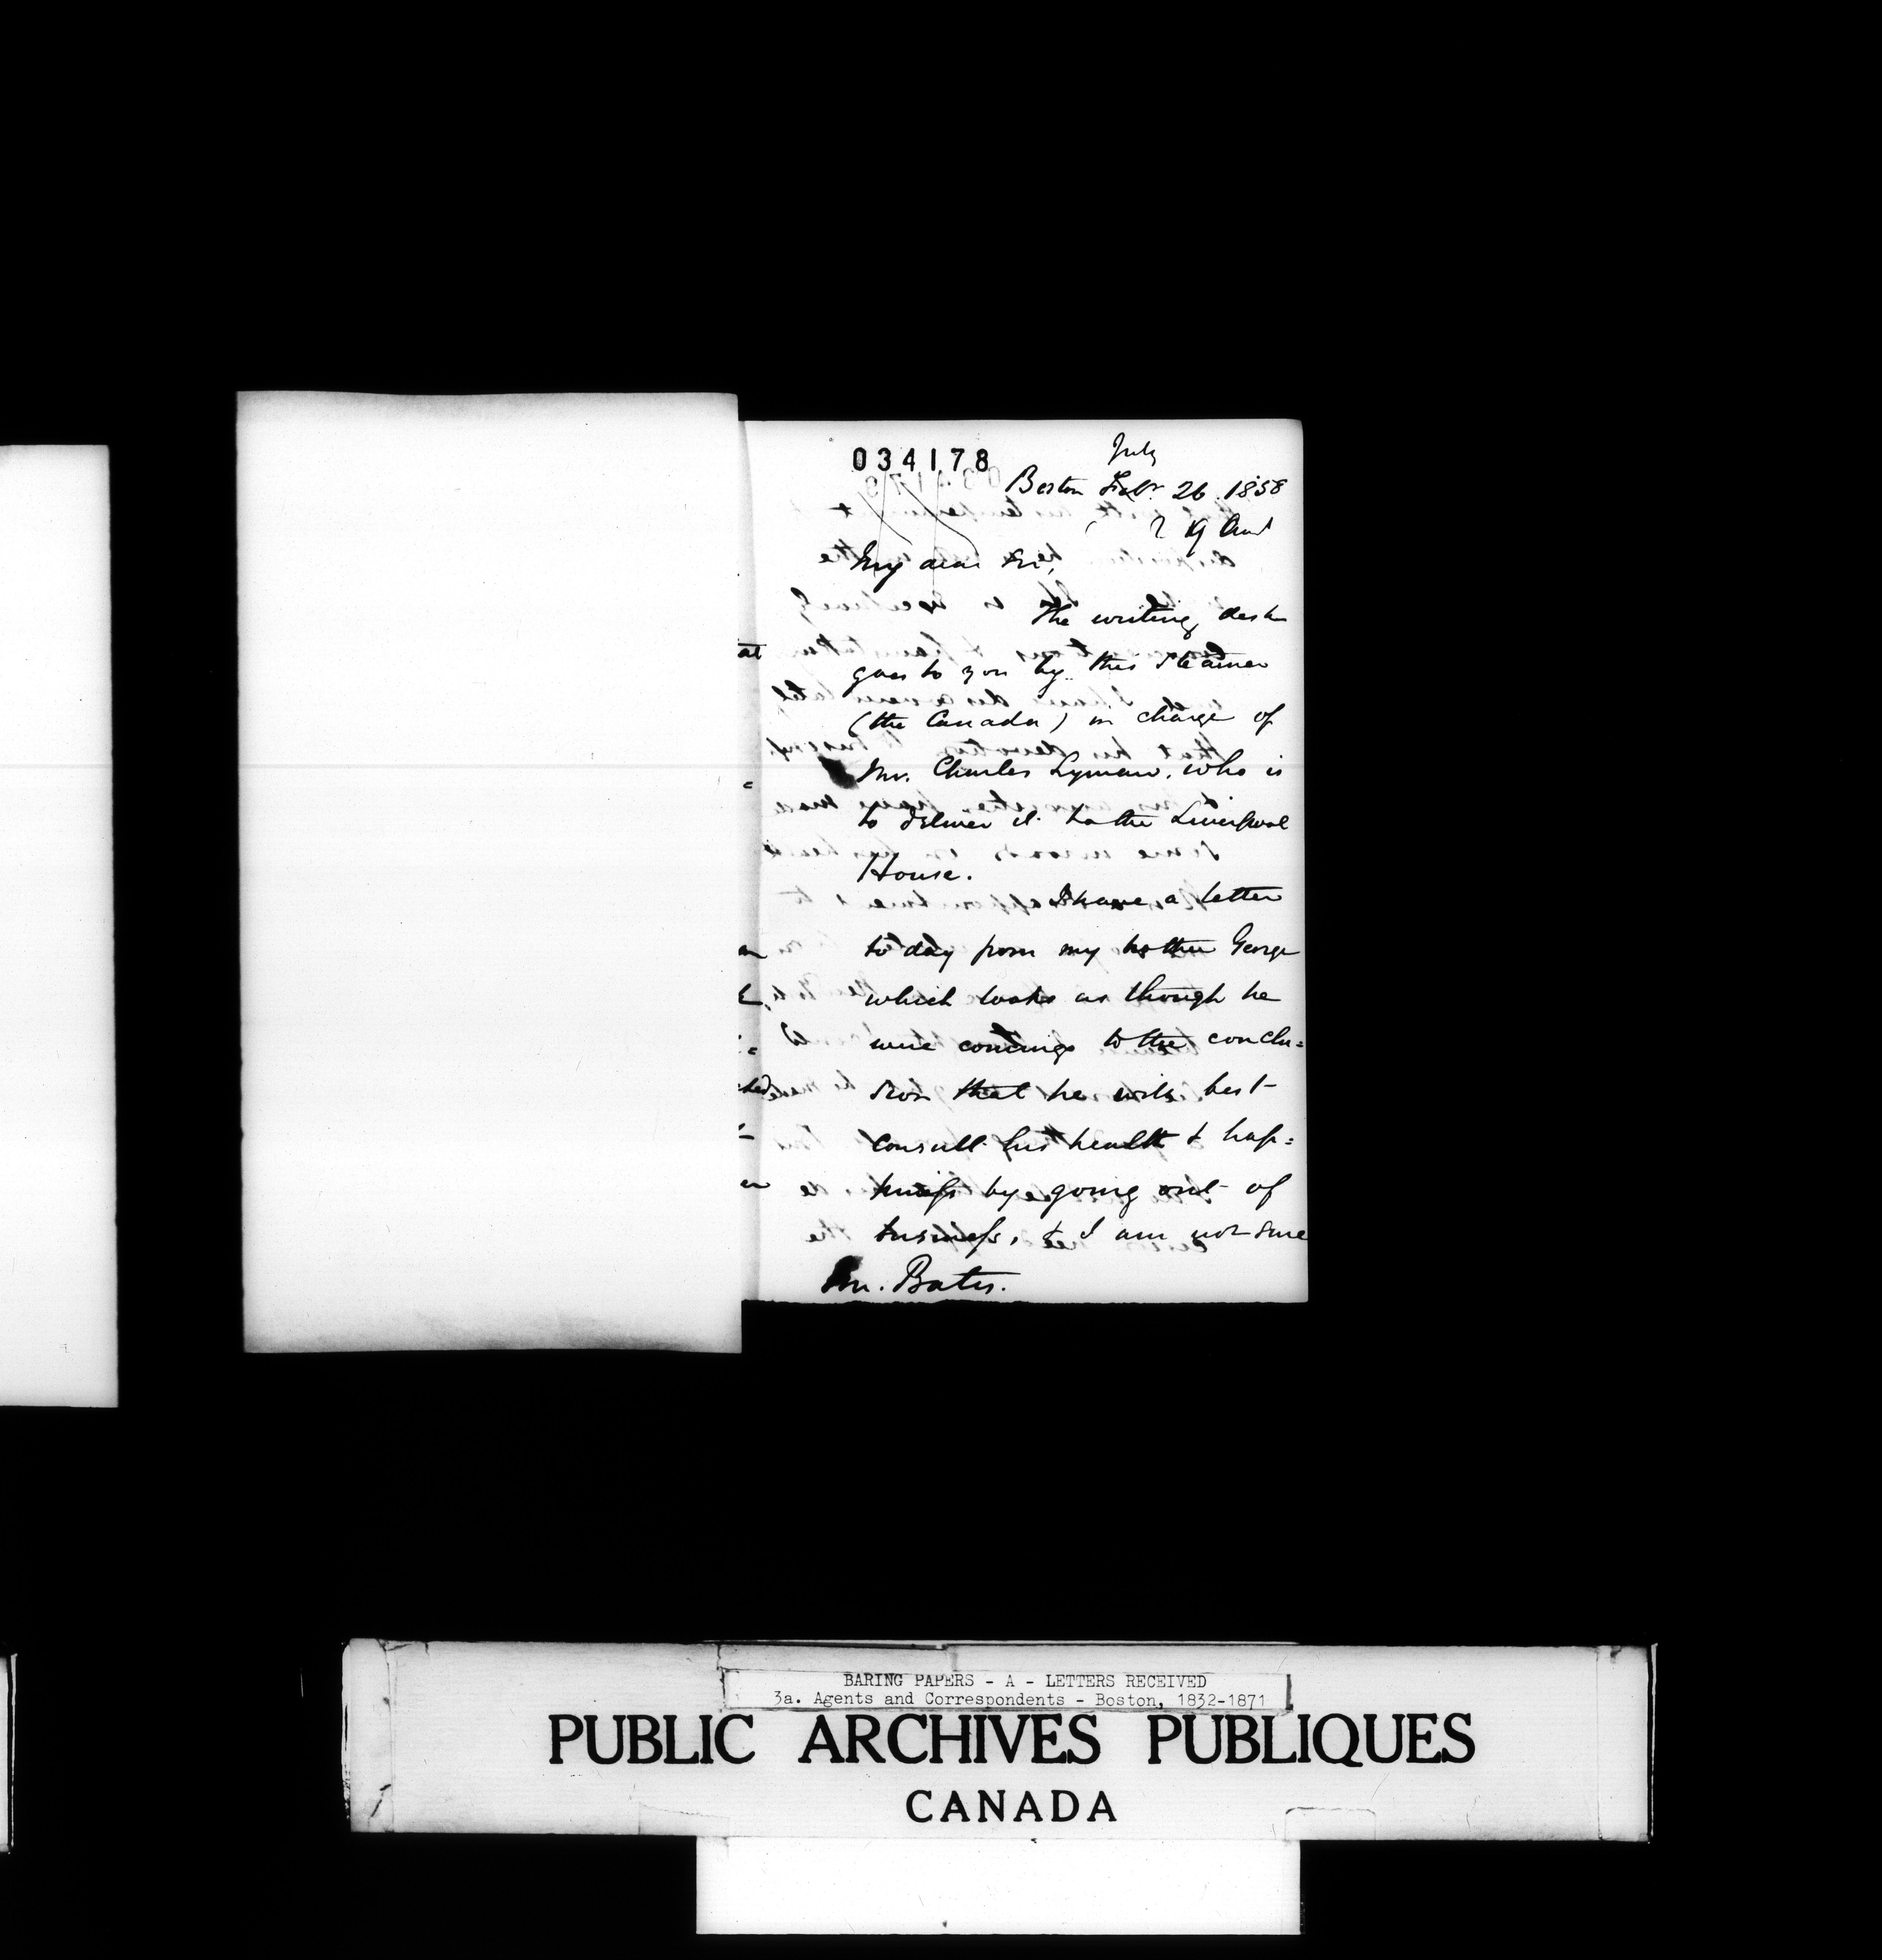 034178
July
Boston Febr. 26. 1858
My dear Sir,
The writing desk
goes to you by this Steamer
(the Canada) in charge of
Mr. Charles Lyman, who is
to deliver it to the Liverpool
House.
I have a letter
to day from my brother George
which looks as though he
were coming to the conclu=
sion that he will best
consult his health & hap=
piness by going out of
business, & I am not sure
Mr. Bates.
BARING PAPERS - A - LETTERS RECEIVED
3a. Agents and Correspondents - Boston, 1832-1871
PUBLIC ARCHIVES PUBLIQUES
CANADA